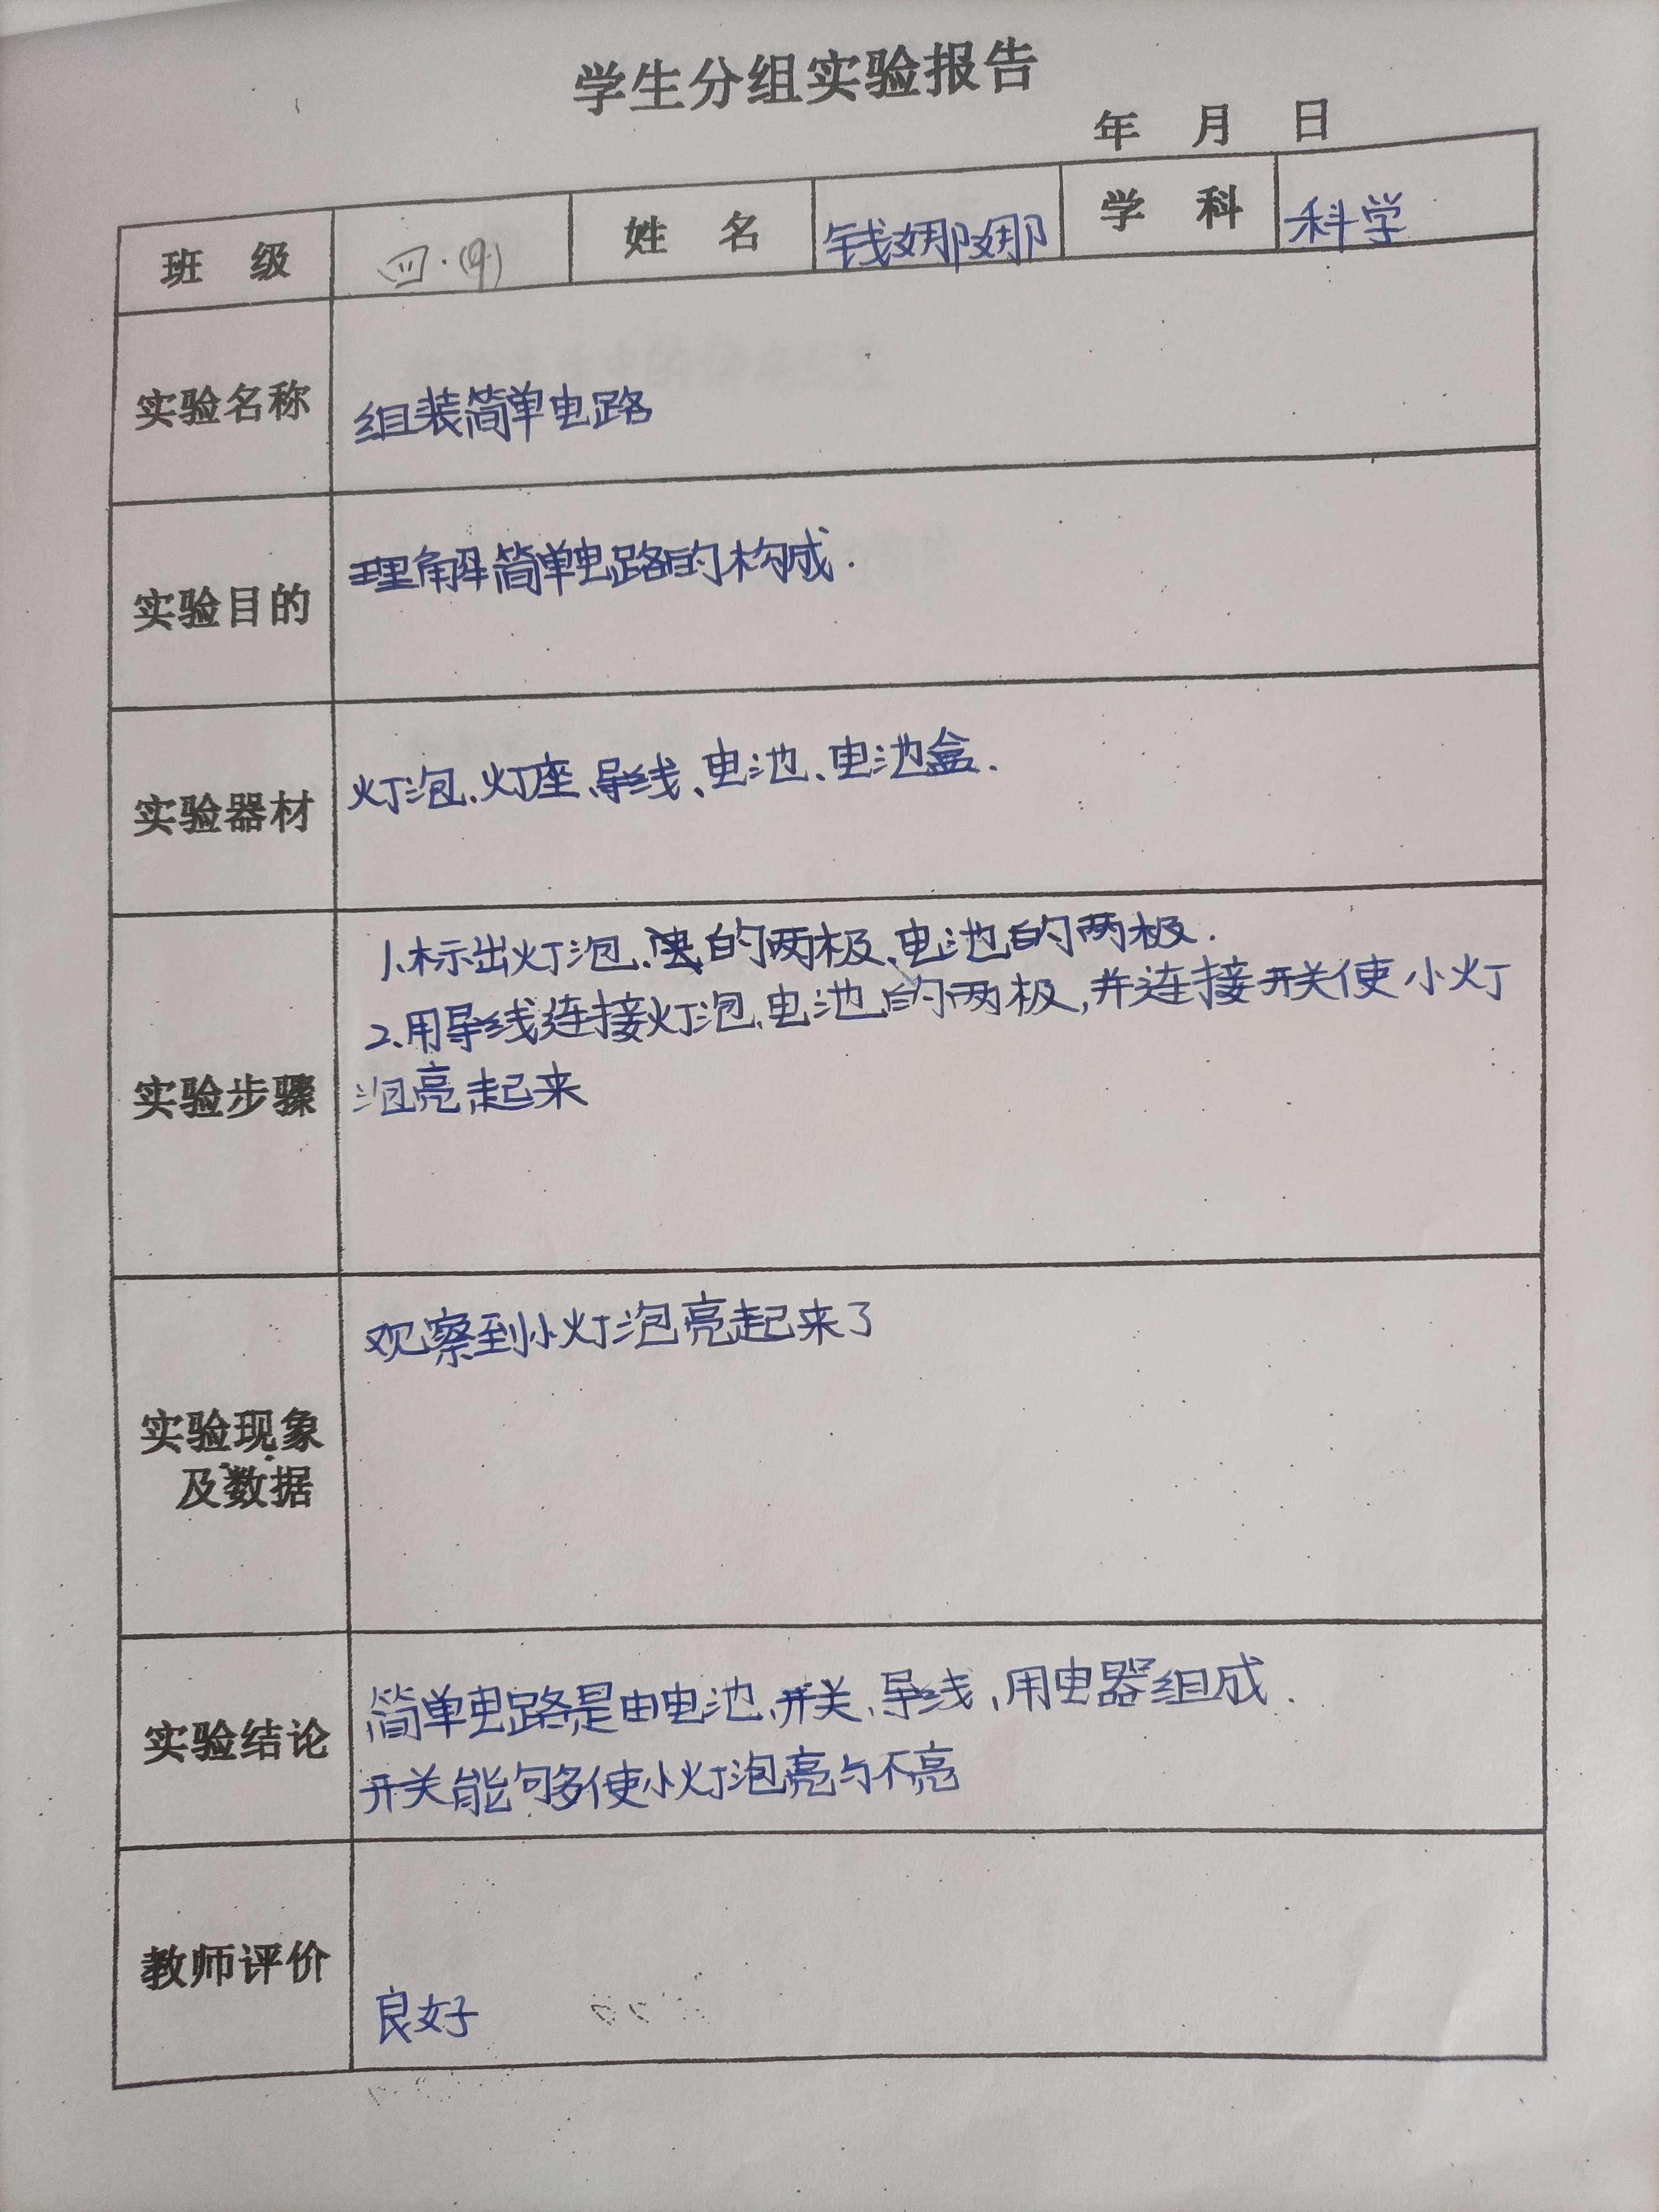 学生分组实验报告
年 月 日
班 级 四.(9) 姓 名 钱娜娜 学 科 科学
实验名称 组装简单电路
实验目的 理解简单电路的构成.
实验器材 灯泡、灯座、导线、电池、电池盒.
实验步骤
1、标出灯泡、的两极、电池的两极.
2、用导线连接灯泡、电池的两极,并连接开关使小灯
泡亮起来
实验现象
及数据
观察到小灯泡亮起来了
实验结论
简单电路是由电池、开关、导线,用电器组成.
开关能够使小灯泡亮与不亮
教师评价 良好